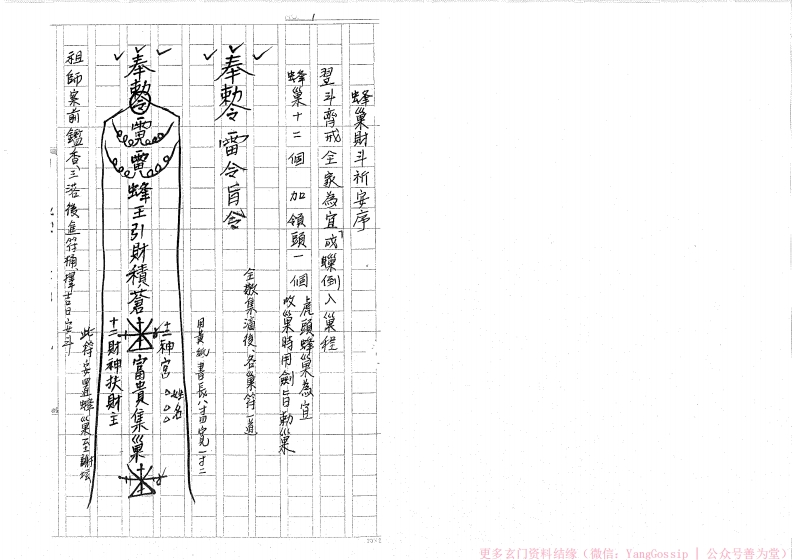 1
蜂巢財斗祈安序
翌斗齊戒全家為宜或䫫倒入巢程
蜂巢十二個 加領頭一個
虎頭蜂巢為宜
收巢時用劍旨勅巢
全數集滿後、各巢符一道
奉勅令 雷令旨令
用黃紙書長八寸四寬一寸二
奉勅令雷雷蜂王引財積蒼富貴集巢
十二神宮
姓名
○○○
十二財神扶財主
此符安置蜂巢至謝坛
祖師案前鑑查三浴後進符桶擇吉日安斗
更多玄门资料结缘（微信：YangGossip | 公众号善为堂）